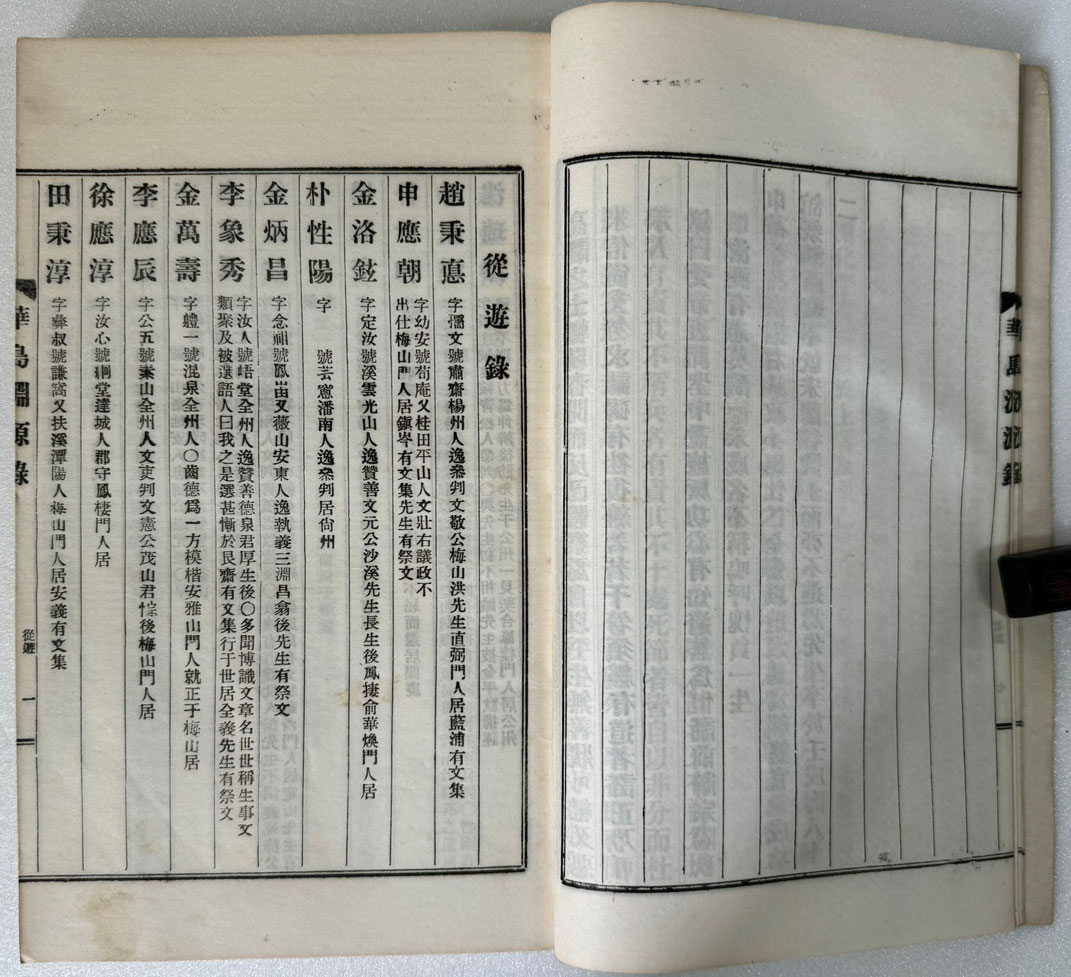 從遊錄
趙秉悳 字彛文號肅齋楊州人逸叅判文敬公梅山洪先生直弼門人居藍浦有文集
申應朝 字幼安號苟庵又桂田平山人文壯右議政不
出仕梅山門人居鎭岑有文集先生有祭文
金洛鉉 字定汝號溪雲光山人逸贊善文元公沙溪先生長生後鳳捿俞華煥門人居
朴性陽 字 號芸窻潘南人逸叅判居尙州
金炳昌 字念祖號鳳峀又薇山安東人逸執義三淵昌翕後先生有祭文
李象秀 字汝人號峿堂全州人逸贊善德泉君厚生後〇多聞博識文章名世世稱生事文
類聚及被選語人曰我之是選甚慚於艮齋有文集行于世居全義先生有祭文
金萬壽 字軆一號混泉全州人〇齒德爲一方模楷安雅山門人就正于梅山居
李應辰 字公五號素山全州人文吏判文憲公茂山君悰後梅山門人居
徐應淳 字汝心號絅堂達城人郡守鳳棲門人居
田秉淳 字彛叔號謙窩又扶溪潭陽人梅山門人居安義有文集
華島淵源錄
從遊
一
華島淵源錄